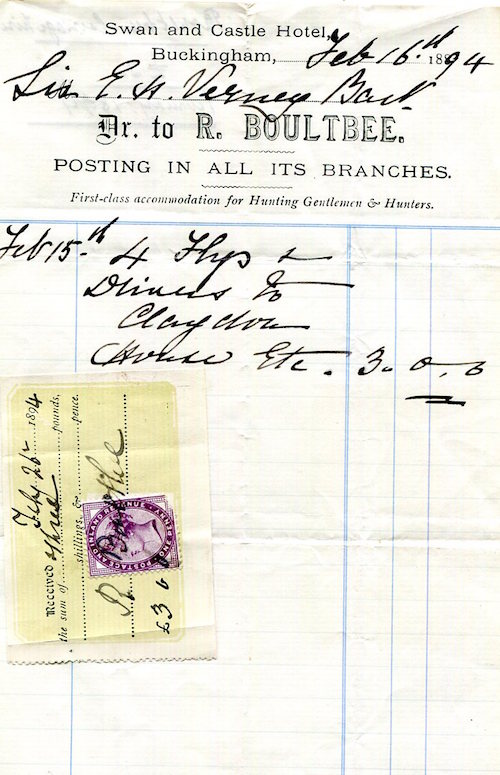 Swan and Castle Hotel,
Buckingham, Feb 16.th 1894
Sir E. H. Verney Bart
Dr. to R. BOULTBEE.
POSTING IN ALL ITS BRANCHES.
First-class accommodation for Hunting Gentlemen & Hunters.
Feb 15.th 4 Flys &
Drivers to
Claydon
House Etc. 3. 0. 0
Received Feby 26 1894
the sum of three pounds,
shillings, & pence.
R Boultbee
£3 0 0
POSTAGE AND INLAND REVENUE
ONE PENNY